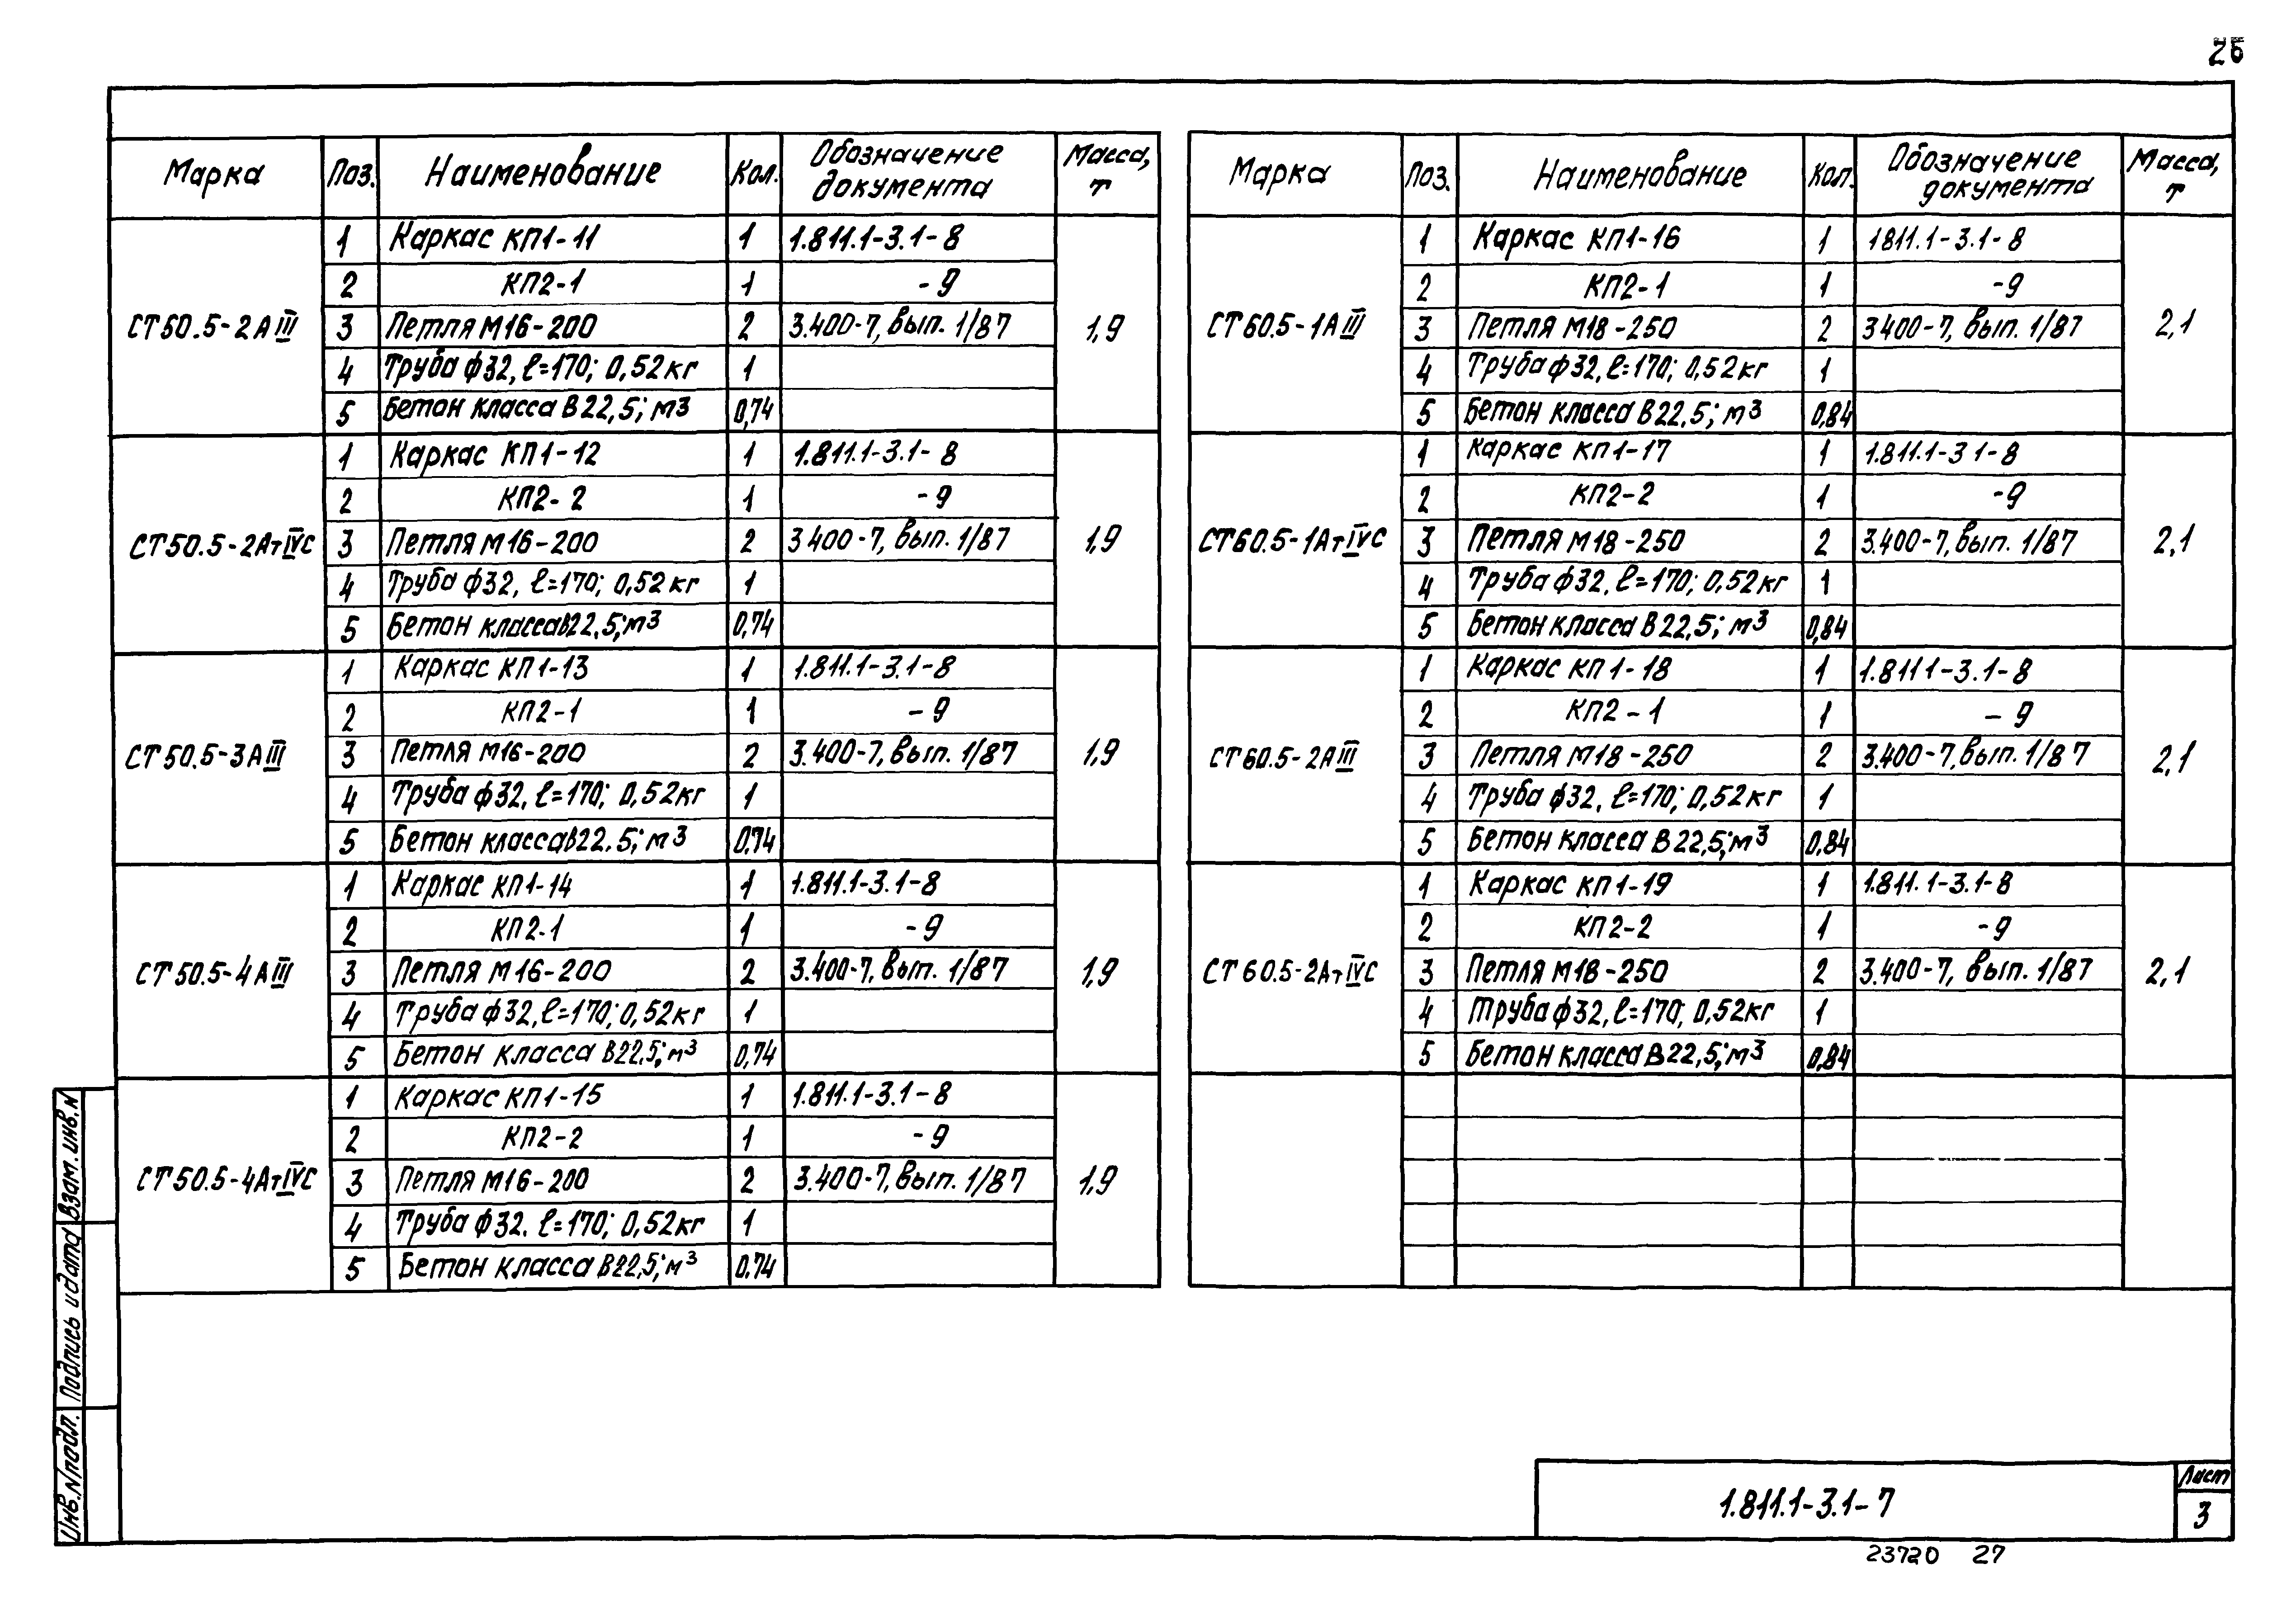 26
Марка Поз. Наименование Кол. Обозначение документа Масса, т
СТ50.5-2АIII 1,9
1 Каркас КП1-11 1 1.811.1-3.1-8
2 КП2-1 1 -9
3 Петля М16-200 2 3.400-7, вып. 1/87
4 Труба ф32, ℓ=170; 0,52кг 1
5 Бетон класса В22,5; м3 0,74
СТ50.5-2АтIVС 1,9
1 Каркас КП1-12 1 1.811.1-3.1-8
2 КП2-2 1 -9
3 Петля М16-200 2 3400-7, вып. 1/87
4 Труба ф32, ℓ=170; 0,52кг 1
5 Бетон класса В22.5; м3 0,74
СТ50.5-3АIII 1,9
1 Каркас КП1-13 1 1.811.1-3.1-8
2 КП2-1 1 -9
3 Петля М16-200 2 3.400-7, вып. 1/87
4 Труба ф32, ℓ=170; 0,52кг 1
5 Бетон класса В22.5; м3 0,74
СТ50.5-4АIII 1,9
1 Каркас КП1-14 1 1.811.1-3.1-8
2 КП2-1 1 -9
3 Петля М16-200 2 3.400-7, вып. 1/87
4 Труба ф32, ℓ=170; 0,52кг 1
5 Бетон класса В22,5; м3 0,74
СТ50.5-4АтIVС 1,9
1 Каркас КП1-15 1 1.811.1-3.1-8
2 КП2-2 1 -9
3 Петля М16-200 2 3.400-7, вып. 1/87
4 Труба ф32. ℓ=170; 0,52кг 1
5 Бетон класса В22,5; м3 0.74
Марка Поз. Наименование Кол. Обозначение документа Масса, т
СТ60.5-1АIII 2,1
1 Каркас КП1-16 1 1811.1-3.1-8
2 КП2-1 1 -9
3 Петля М18-250 2 3400-7, вып. 1/87
4 Труба ф32, ℓ=170; 0,52кг 1
5 Бетон класса В22,5; м3 0,84
СТ60.5-1АтIVС 2,1
1 Каркас КП1-17 1 1.811.1-3 1-8
2 КП2-2 1 -9
3 Петля М18-250 2 3.400-7, вып. 1/87
4 Труба ф32, ℓ=170; 0,52кг 1
5 Бетон класса В22,5; м3 0,84
СТ60.5-2АIII 2,1
1 Каркас КП1-18 1 1.811 1-3.1-8
2 КП2-1 1 -9
3 Петля М18-250 2 3.400-7, вып. 1/87
4 Труба ф32, ℓ=170; 0,52кг 1
5 Бетон класса В22,5; м3 0,84
СТ60.5-2АтIVС 2,1
1 Каркас КП1-19 1 1.811.1-3.1-8
2 КП2-2 1 -9
3 Петля М18-250 2 3.400-7, вып. 1/87
4 Труба ф32, ℓ=170; 0,52кг 1
5 Бетон класса В22,5; м3 0,84
Взам. инв. N
Подпись и дата
Инв. N подл.
1.811.1-3.1-7
Лист
3
23720 27